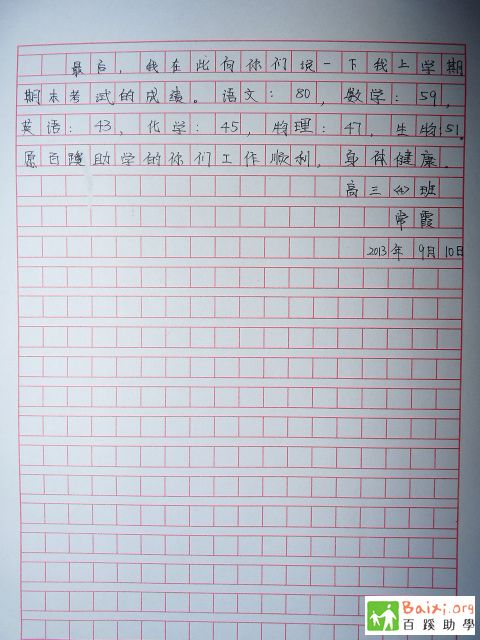 最后，我在此向你们说一下我上学期
期末考试的成绩。语文：80，数学：59，
英语：43，化学：45，物理：47，生物：51。
愿百蹊助学的你们工作顺利，身体健康。
高三<4>班
常霞
2013年9月10日
Baixi.org
百蹊助學